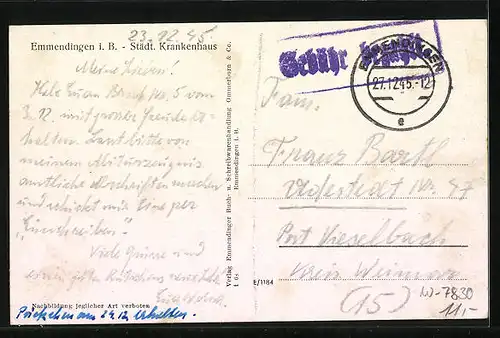 23.12.45.
Emmendingen i. B. - Städt. Krankenhaus
Meine Lieben!
Habe Euren Brief Nr. 5 vom
3. 12. mit großer Freude er-
halten. Laßt bitte von
meinem Abiturzeugnis
amtliche Abschriften machen
und schickt mir eine per
"Einschreiben."
Viele Grüsse und
einen
Nachbildung jeglicher Art verboten
Päckchen am 24.12. erhalten.
Verlag Emmendinger Buch- u. Schreibwarenhandlung Ommerborn & Co.
Emmendingen i. B.
f. 6s.
Gebühr bezahlt
EMMENDINGEN
27.12.45.-12
e
Fam.
Franz Barth
Udestedt Nr. 47
Post Vieselbach
Kreis Weimar
E/1184
(15)
W-7830
11,-